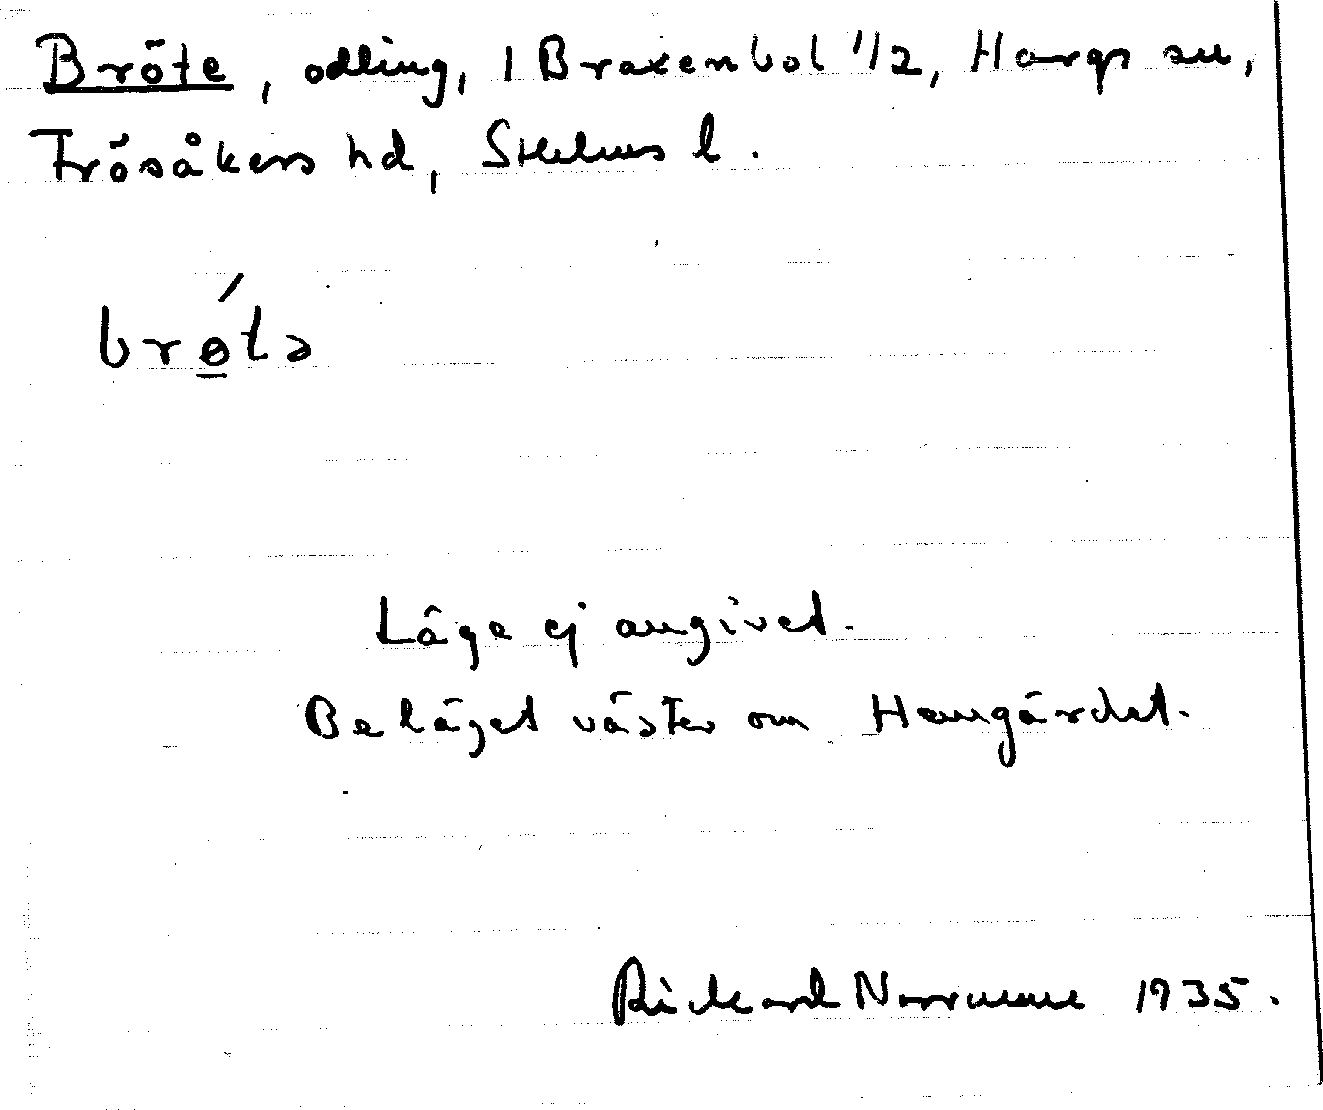 Bröte, odling, 1 Braxenbol 1/2, Hargs sn,
Frösåkers hd, Sthlms l.
brǿ̲tə
Läge ej angivet.
Beläget väster om Hemgärdet.
Rickard Norrmene 1935.